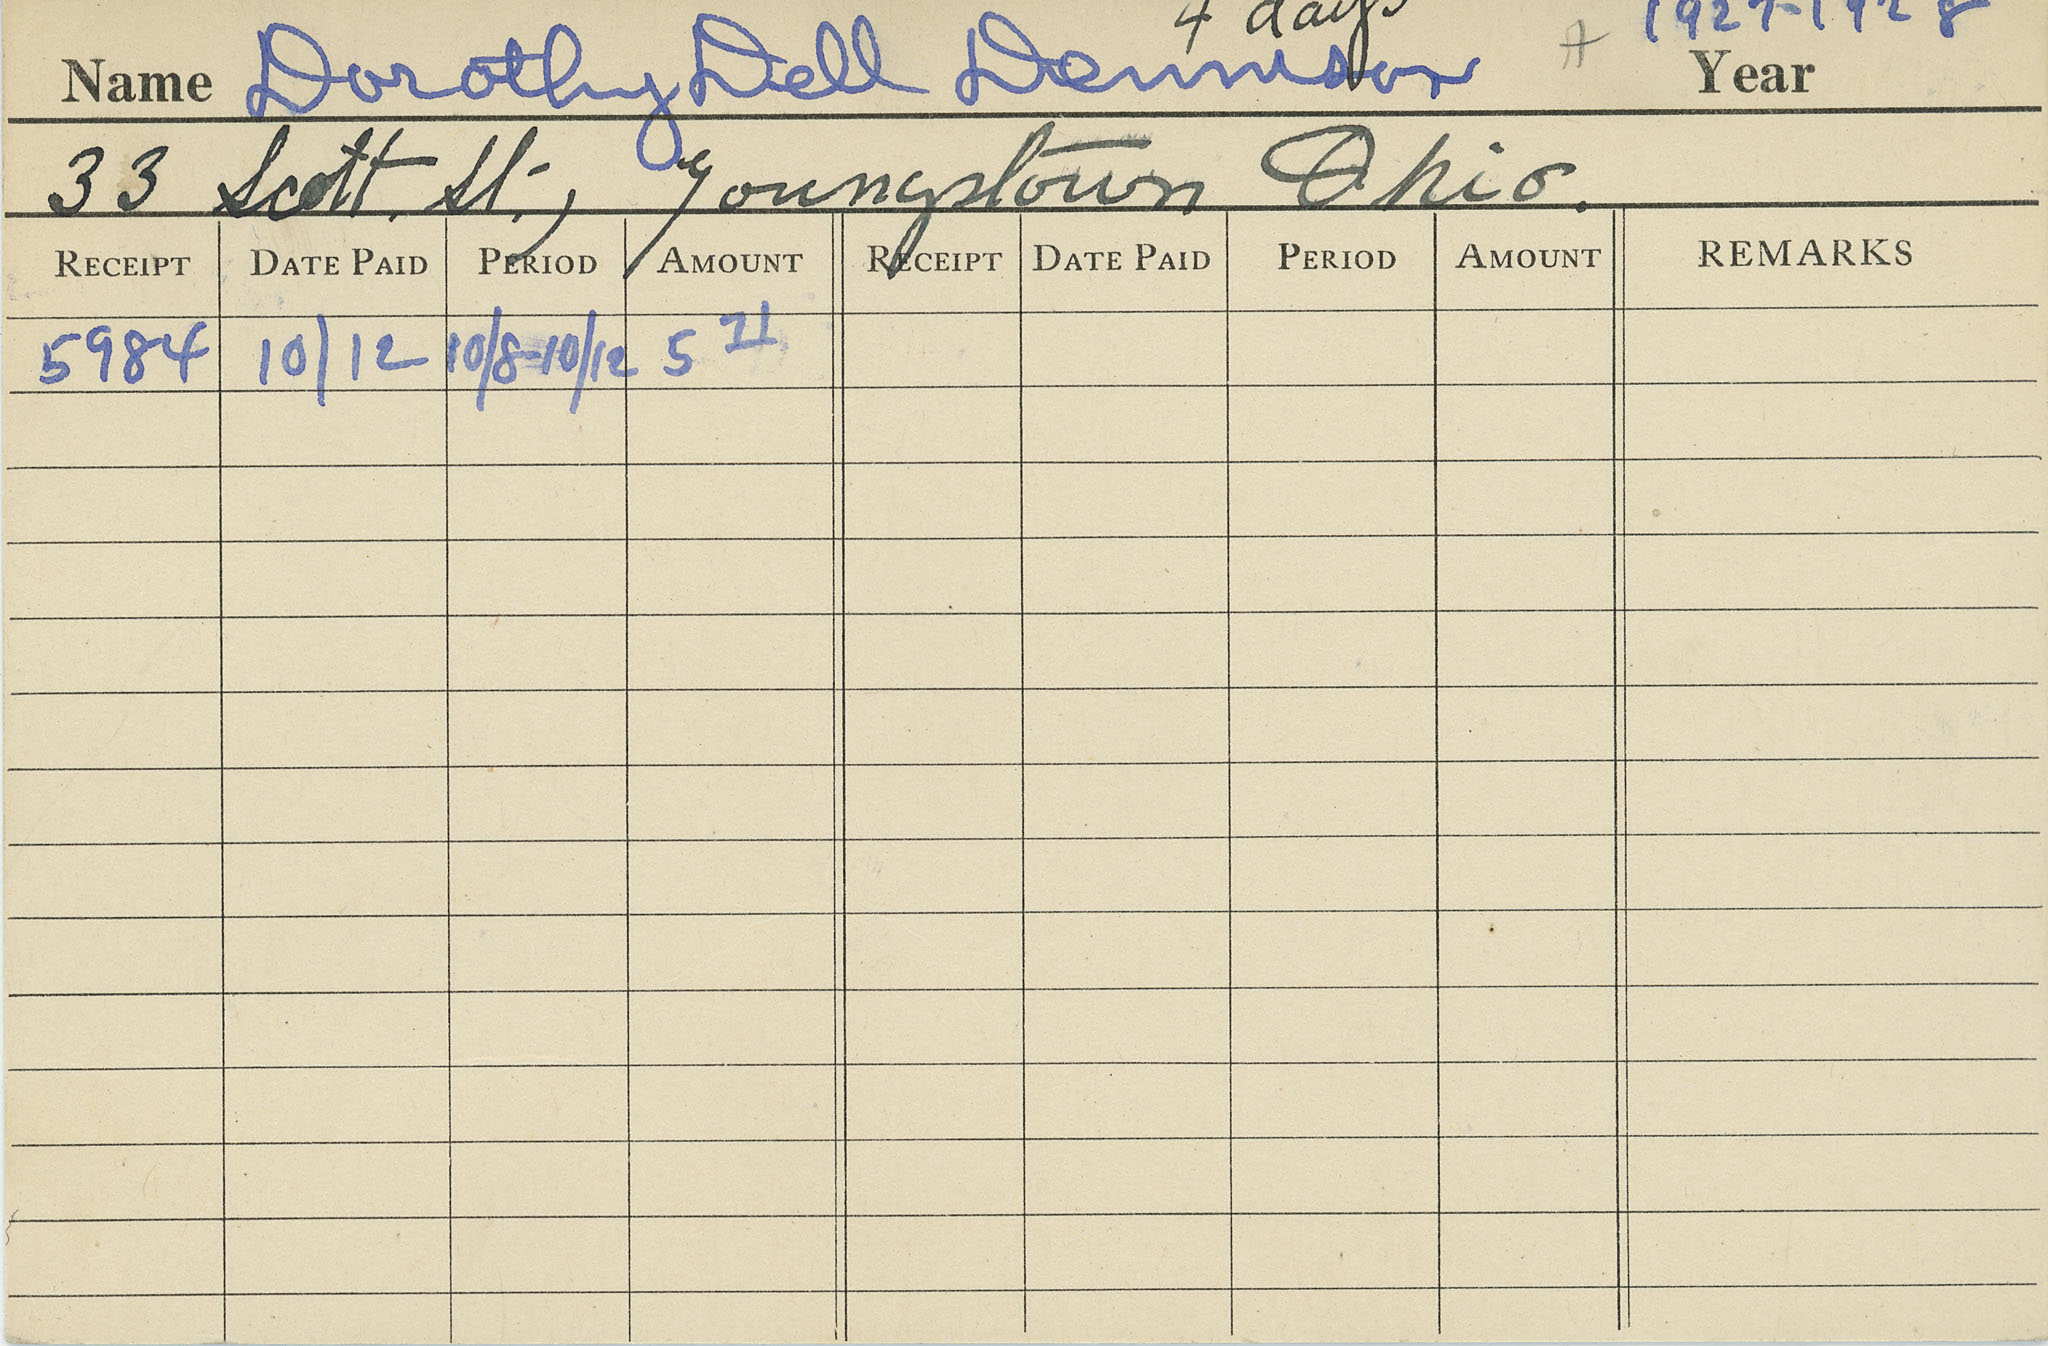 4 days
Name Dorothy Dell Dennison A 1927-1928 Year
33 Scott St., Youngstown Ohio.
RECEIPT DATE PAID PERIOD AMOUNT RECEIPT DATE PAID PERIOD AMOUNT REMARKS
5984 10/12 10/8-10/12 5 71